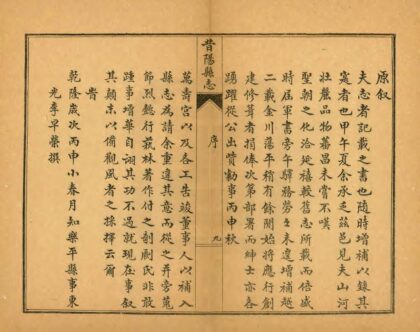 原叙
夫志者記載之書也隨時增補以錄其
寔者也甲午夏余承乏茲邑見夫山河
壯麗品物蕃昌未嘗不嘆
聖朝之化洽延禧較舊志所載而倍盛
時屆軍書旁午驛務勞々未遑增補越
二載金川蕩平稍有餘閒始將應行創
建修葺者捐俸次第部署而紳士亦各
踴躍從公出貲勷事丙申秋
昔陽縣志
序
九
萬壽宮以及各工告竣董事人以補入
縣志為請余重違其意而從之并旁蒐
節烈懿行藝林著作付之剞劂氏非敢
踵事增華自詡其功不過就現在事叙
其顛末以備觀風者之採擇云爾
旹
乾隆歲次丙申小春月知樂平縣事東
光李早榮撰